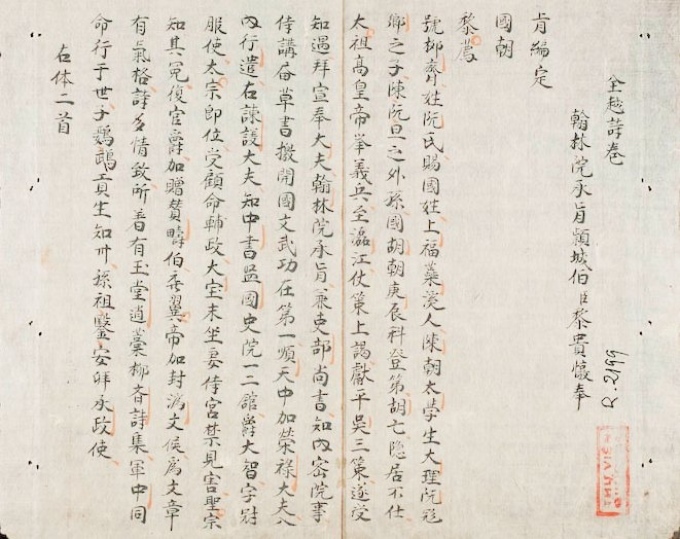 全越詩卷
翰林院承旨頴城伯臣黎貴惇奉
旨編定
國朝
黎廌
號抑齋姓阮氏賜國姓上福蘂溪人陳朝太學生大理阮飛
卿之子陳阮旦之外孫國胡朝庚辰科登第胡亡隐居不仕
太祖高皇帝举義兵至瀘江仗策上謁獻平吳三策遂受
知遇拜宣奉大夫翰林院承旨兼吏部尚書知內密院事
侍講居草書撥開國文武功在第一順天中加榮祿大夫入
內行遣右諫議大夫知中書監國史院一二舘爵大智字尉
服使太宗即位受顧命輔政大宝末坐妻侍宮禁見害聖宗
知其冤復官爵加贈贊疇伯 翼帝加封濟文侯為文章
有氣格詩多情致所著有玉堂遺藁抑齋詩集軍中同
命行于世子鸚鵡員生知州孫祖鑒安拜承政使
右体二首
R.2199